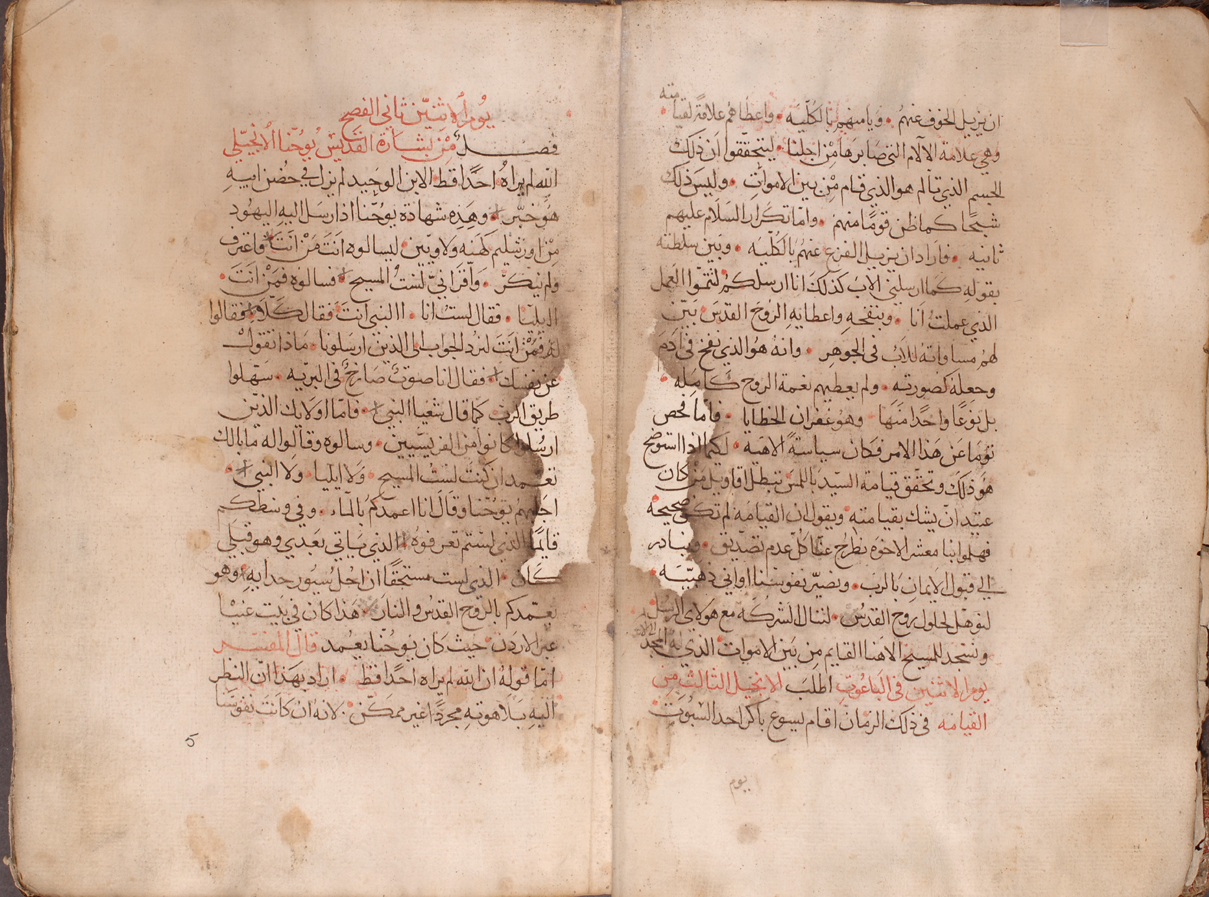 ان يزيل الخوف عنهم • ويامنهم بالكليه • واعطاهم علامة لقيامته
وهي علامة الالام التي صابرها من اجلنا • ليتحققوا ان ذلك
الجسم الذي تالم هو الذي قام من بين الاموات • وليس ذلك
شبحًا كما ظن قومًا منهم • واما تكرار السلام عليهم
ثانيه • فاراد ان يزيل الفزع عنهم بالكليه • وبين سلطته
بقوله كما ارسلني الاب كذلك انا ارسلكم لتتموا العمل
الذي عملت انا • وبنفخه واعطايه الروح القدس بين
لهم مساواته للاب في الجوهر • وانه هو الذي نفخ في ادم
وجعله كصورته • ولم يعطيهم نعمة الروح كامله •
بل نوعًا واحدًا منها • وهو غفران الخطايا • فاما فحص
توما عن هذا الامر فكان سياسةً الاهيه • لكيما اذا استوضح
هو ذلك وتحقق قيامة السيد باللمس تبطل اقاويل من كان
عتيد ان يشك بقيامته • ويقول ان القيامه لم تكن صحيحه
فهلموا بنا معشر الاخوه نطرح عنا كل عدم تصديق • ونبادر
الي قبول الايمان بالرب • ونصير نفوسنا اواني ذهبيه •
لنوهل لحلول روح القدس • لننال الشركه مع هولاي الرسل
ونسجد للمسيح الاهنا القايم من بين الاموات الذي له المجد
يوم الاثنين في الباعوث اطلب الانجيل الثالث من
القيامه في ذلك الزمان اقام يسوع باكر احد السبوت
يوم
يوم الاثنين ثاني الفصح
فصل من بشارة القديس يوحنا الانجيلي
الله لم يراه احدًا قط • الابن الوحيد لم يزل في حضن ابيه
هو خبر • وهذه شهادة يوحنا اذ ارسل اليه اليهود
من اورشليم كهنه ولاويين • ليسالوه انت من انت • فاعترف
ولم ينكر • واقر اني لست المسيح • فسالوه فمن انت •
ايليا • فقال لست انا • االنبي انت فقال كلا • فقالوا
له فمن انت لنرد الجواب الي الذين ارسلونا • ماذا تقول
عن نفسك • فقال انا صوت صارخ في البريه • سهلوا
طريق الرب كما قال شعيا النبي • فاما اولايك الذين
ارسلوا كانوا من الفريسيين • وسالوه وقالوا له ما بالك
تعتمد ان كنت لست المسيح • ولا ايليا • ولا النبي •
اجابهم يوحنا وقال انا اعمدكم بالماء • وفي وسطكم
قايمًا الذي لستم تعرفوه • الذي ياتي بعدي وهو قبلي
كان • الذي لست مستحقًا ان احل سيور حدايه • وهو
يعمدكم بالروح القدس والنار • هذا كان في بيت عنيا
عبر الاردن • حيث كان يوحنا يعمد قال المفسر
اما قوله ان الله لم يراه احدًا قط • اراد بهذا ان النظر
اليه بلاهوته مجردًا غير ممكن • لانه ان كانت نفوسنا
5